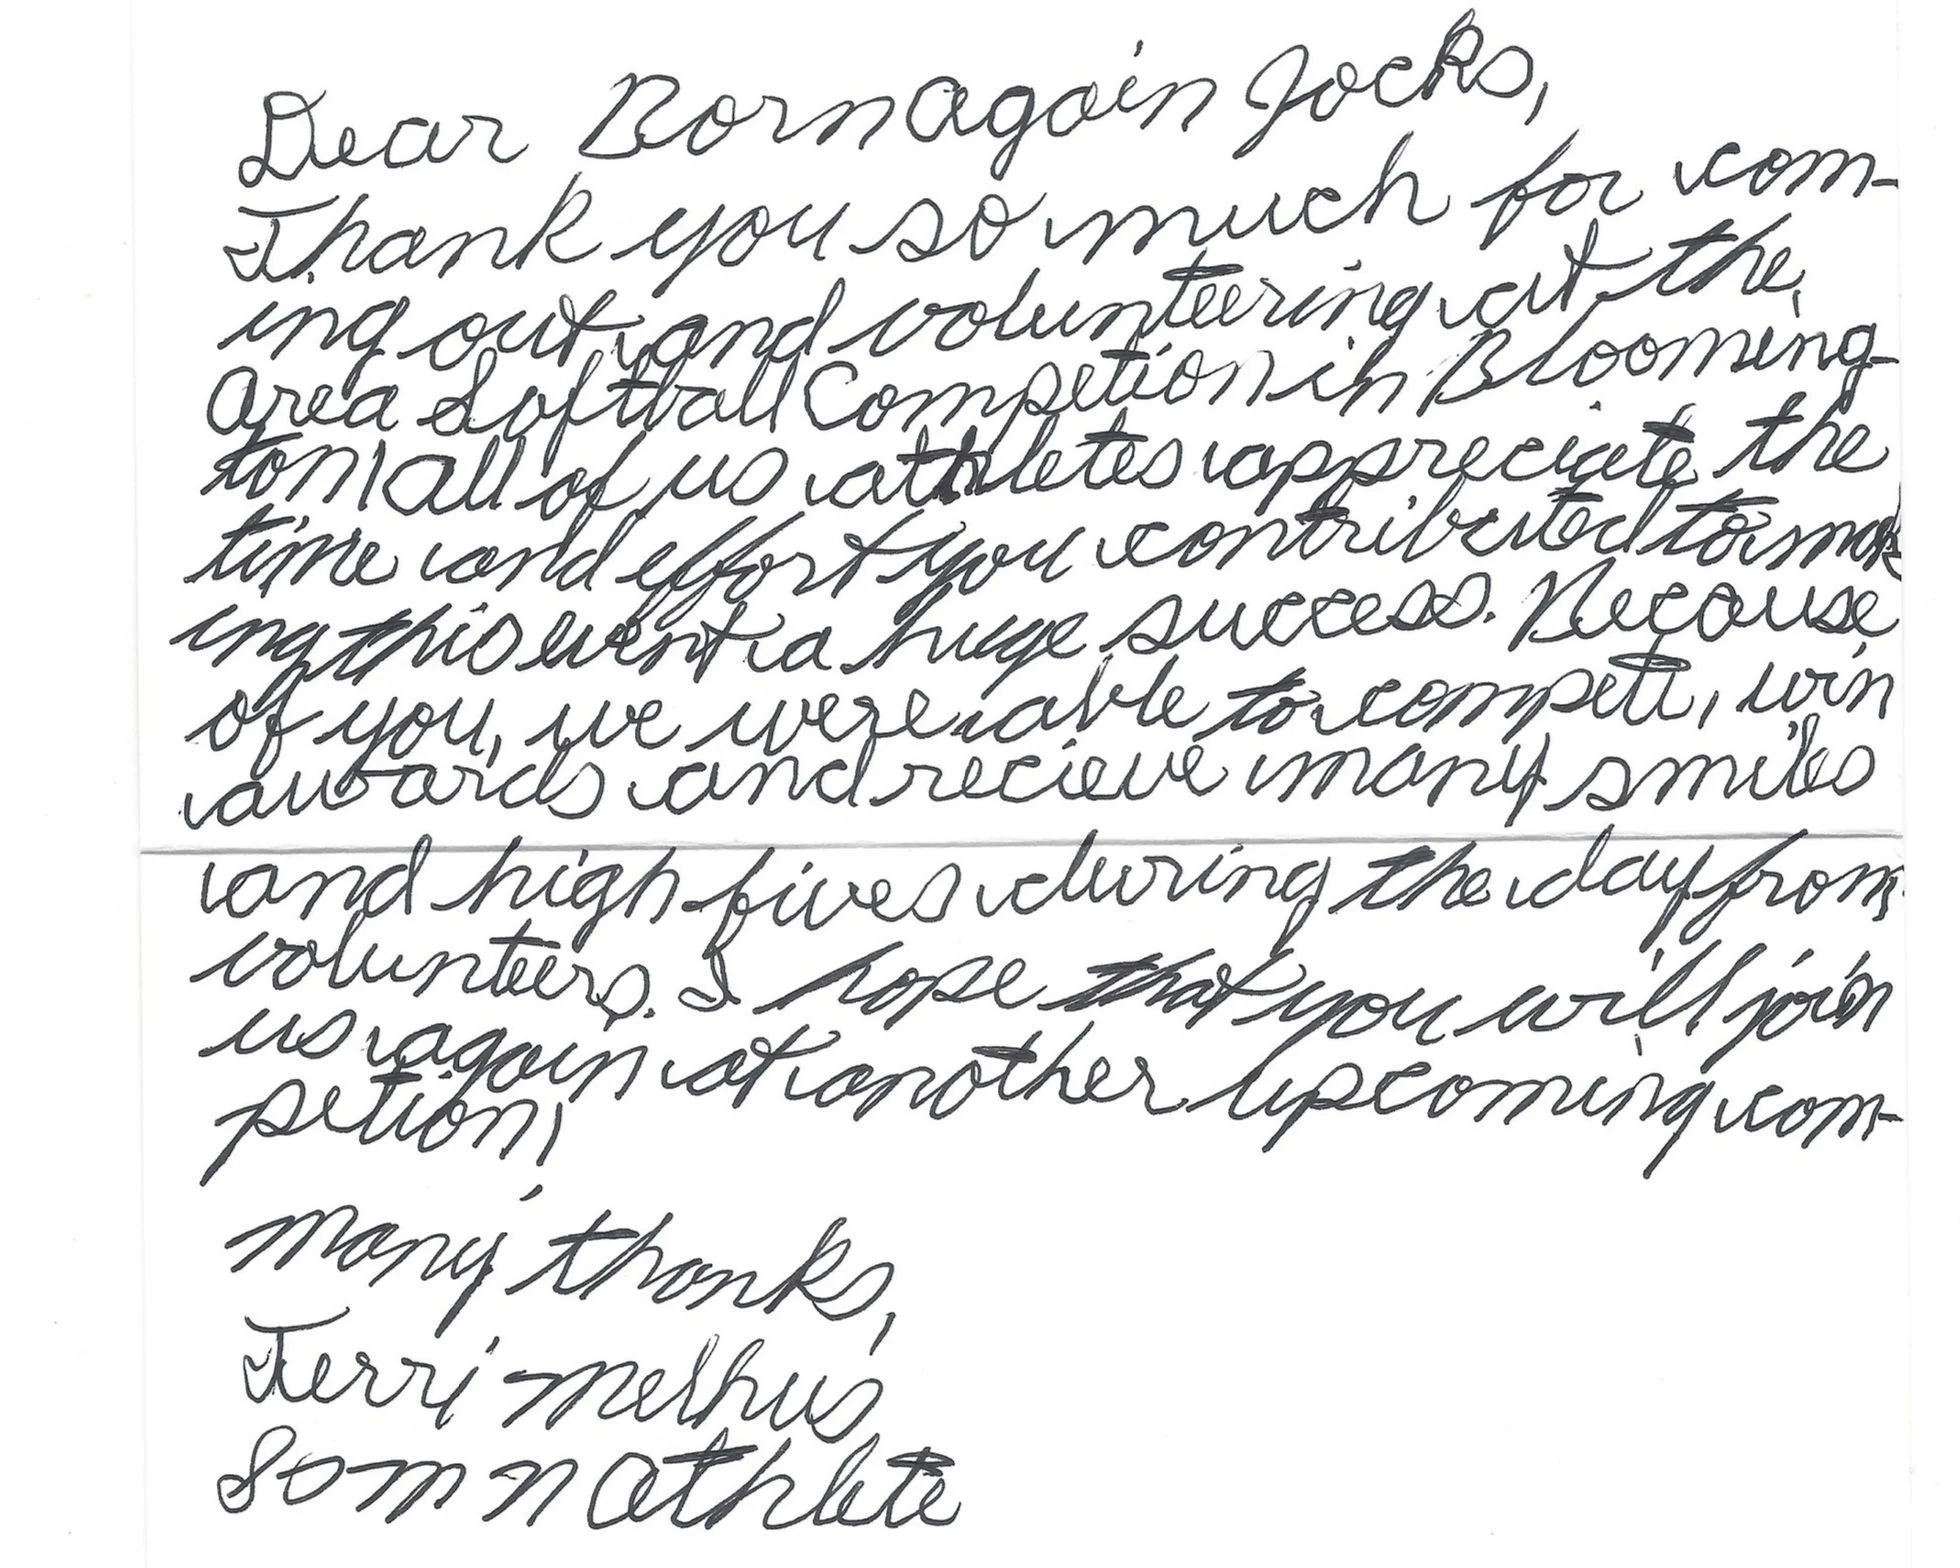 Dear Born Again Jocks,
Thank you so much for com-
ing out and volunteering at the
Area Softball Competion in Blooming-
ton! All of us athletes appreciate the
time and effort you contributed to mak
ing this event a huge success. Because
of you, we were able to compete, win
awards and recieve many smiles
and high fives during the day from
volunteers. I hope that you will join
us again at another upcoming com-
petion!
Many thanks,
Terri Melhus
SOMN Athlete